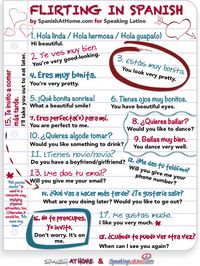 FLIRTING IN SPANISH
by SpanishAtHome.com for Speaking Latino
1. Hola linda / Hola hermosa / Hola guapa(o)
Hi beautiful.
2. Te ves muy bien
You're very good-looking.
3. Estás muy bonita.
You look very pretty.
4. Eres muy bonita.
You're very pretty.
5. ¡Qué bonita sonrisa!
What a beautiful smile!
6. Tienes ojos muy bonitos.
You have beautiful eyes.
7. Eres perfect(a/o) para mí.
You are perfect to me.
8. ¿Quieres bailar?
Would you like to dance?
9. Bailas muy bien.
You dance very well.
10. ¿Quieres algode tomar?
Would you like something to drink?
11. ¿Tienes novio/novia?
Do you have a boyfriend/girlfriend?
12. ¿Me das tu teléfono?
Will you give me your
phone number?
13. ¿Me das tu email?
Will you give me your email?
14. ¿Qué vas a hacer más tarde? ¿Te gustaría salir?
What are you doing later? Would you like to go out?
15. Te invito a comer
más tarde.
I'll take you out to eat later.
16. No te preocupes,
Yo invito.
Don't worry. It's on
me.
17. Me gustas mucho.
I like you very much.
18. ¿Cuándo te puedo ver otra vez?
When can I see you again?
SPANISH AT HOME & SpeakingLatino.com